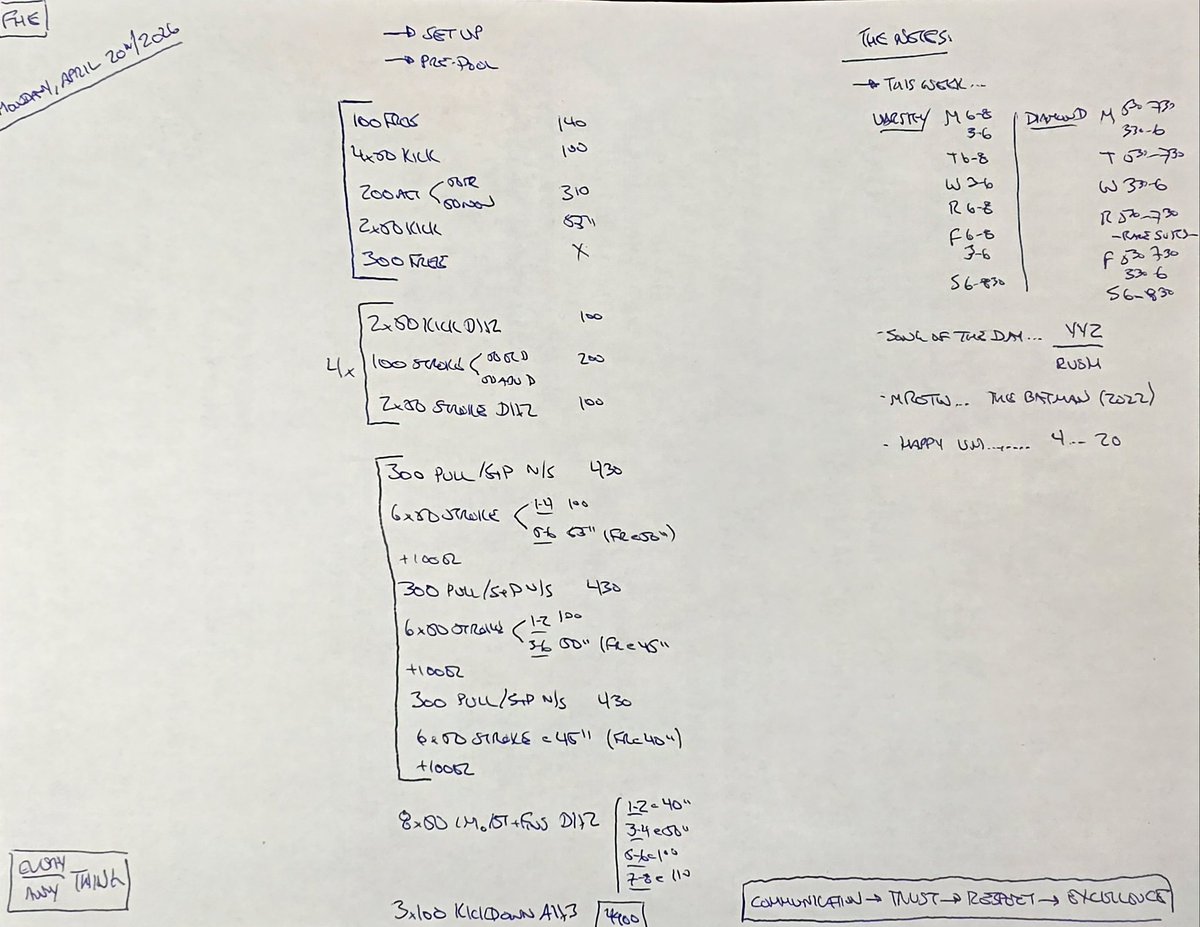 FHE
MONDAY, APRIL 20TH/2026
→ SET UP
→ PRE-POOL
100 FROS 140
4x50 KICK 100
200 ALT 50 TR 310
50 NON
2x50 KICK 55"
300 FREE X
4x
2x50 KICK D1>2 100
100 STROKE 50 BLD 200
50 AQU D
2x50 STROKE D1>2 100
300 PULL/S+P N/S 430
6x50 STROKE 1-4 100
5-6 55" (FR @ 50")
+100EZ
300 PULL/S+P N/S 430
6x50 STROKE 1-2 100
3-6 50" (FR @ 45"
+100EZ
300 PULL/S+P N/S 430
6x50 STROKE @ 45" (FR @ 40")
+100EZ
8x50 D1>2
1-2 @ 40"
3-4 @ 50"
5-6 @ 100
7-8 @ 110
3x100 KICKDOWN A1>3 4900
THE NOTES:
→ THIS WEEK...
VARSITY M 6-8
3-6
T 6-8
W 3-6
R 6-8
F 6-8
3-6
S 6-830
DIAMOND M 530-730
330-6
T 530-730
W 330-6
R 530-730
-RACE SUITS-
F 530 730
330-6
S 6-830
- SONG OF THE DAY... YYZ
RUSH
- MROTW... THE BATMAN (2022)
- HAPPY UM....... 4... 20
EVERY
ANY THING
COMMUNICATION → TRUST → RESPECT → EXCELLENCE